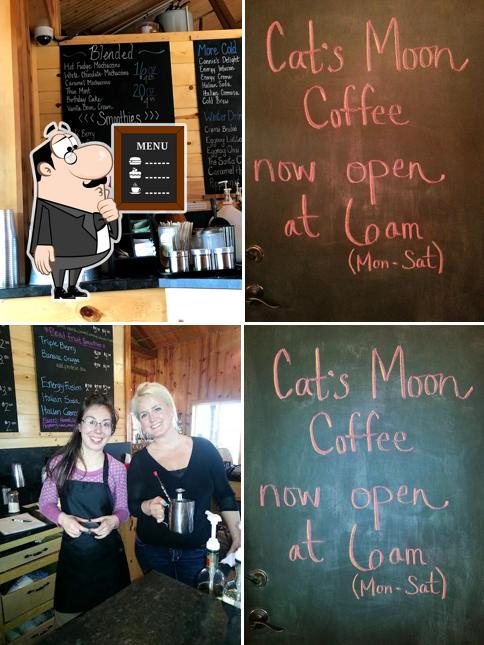 Blended
Hot Fudge Mochaccino
White Chocolate Mochaccino
Caramel Mochaccino
Thin Mint
Birthday Cake
Vanilla Bean Cream
16oz
20oz
<<< Smoothies >>>
Berry
More Cold
Connie's Delight
Energy Infusion
Energy Creme
Italian Soda
Italian Cremosa
Cold Brew
Winter Drin
MENU
Cat's Moon
Coffee
now open
at 6am
(Mon-Sat)
Real Fruit Smoothies
Triple Berry
Banana Orange
Energy Fusion
Italian Soda
Cat's Moon
Coffee
now open
at 6am
(Mon-Sat)